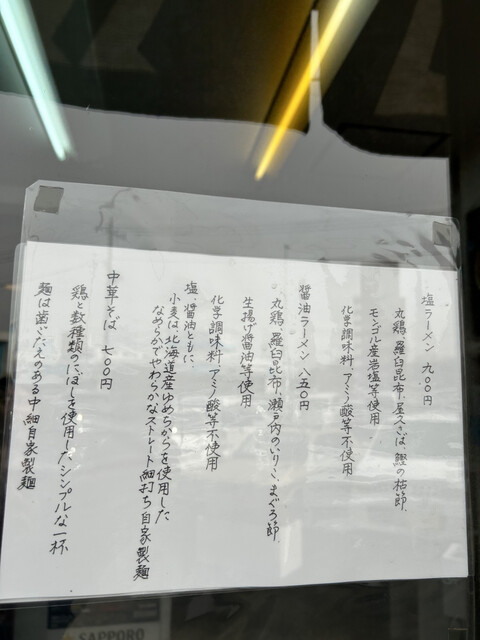 塩ラーメン 九〇〇円
丸鶏、羅臼昆布、屋久さば、鰹の枯節、
モンゴル産岩塩等使用
化学調味料、アミノ酸等不使用
醤油ラーメン 八五〇円
丸鶏、羅臼昆布、瀬戸内のいりこ、まぐろ節、
生揚げ醤油等使用
化学調味料、アミノ酸等不使用
塩、醤油ともに
小麦は、北海道産ゆめちからを使用した
なめらかでやわらかなストレート細打ち自家製麺
中華そば 七〇〇円
鶏と数種類のにぼしを使用したシンプルな一杯
麺は歯ごたえのある中細自家製麺
SAPPORO